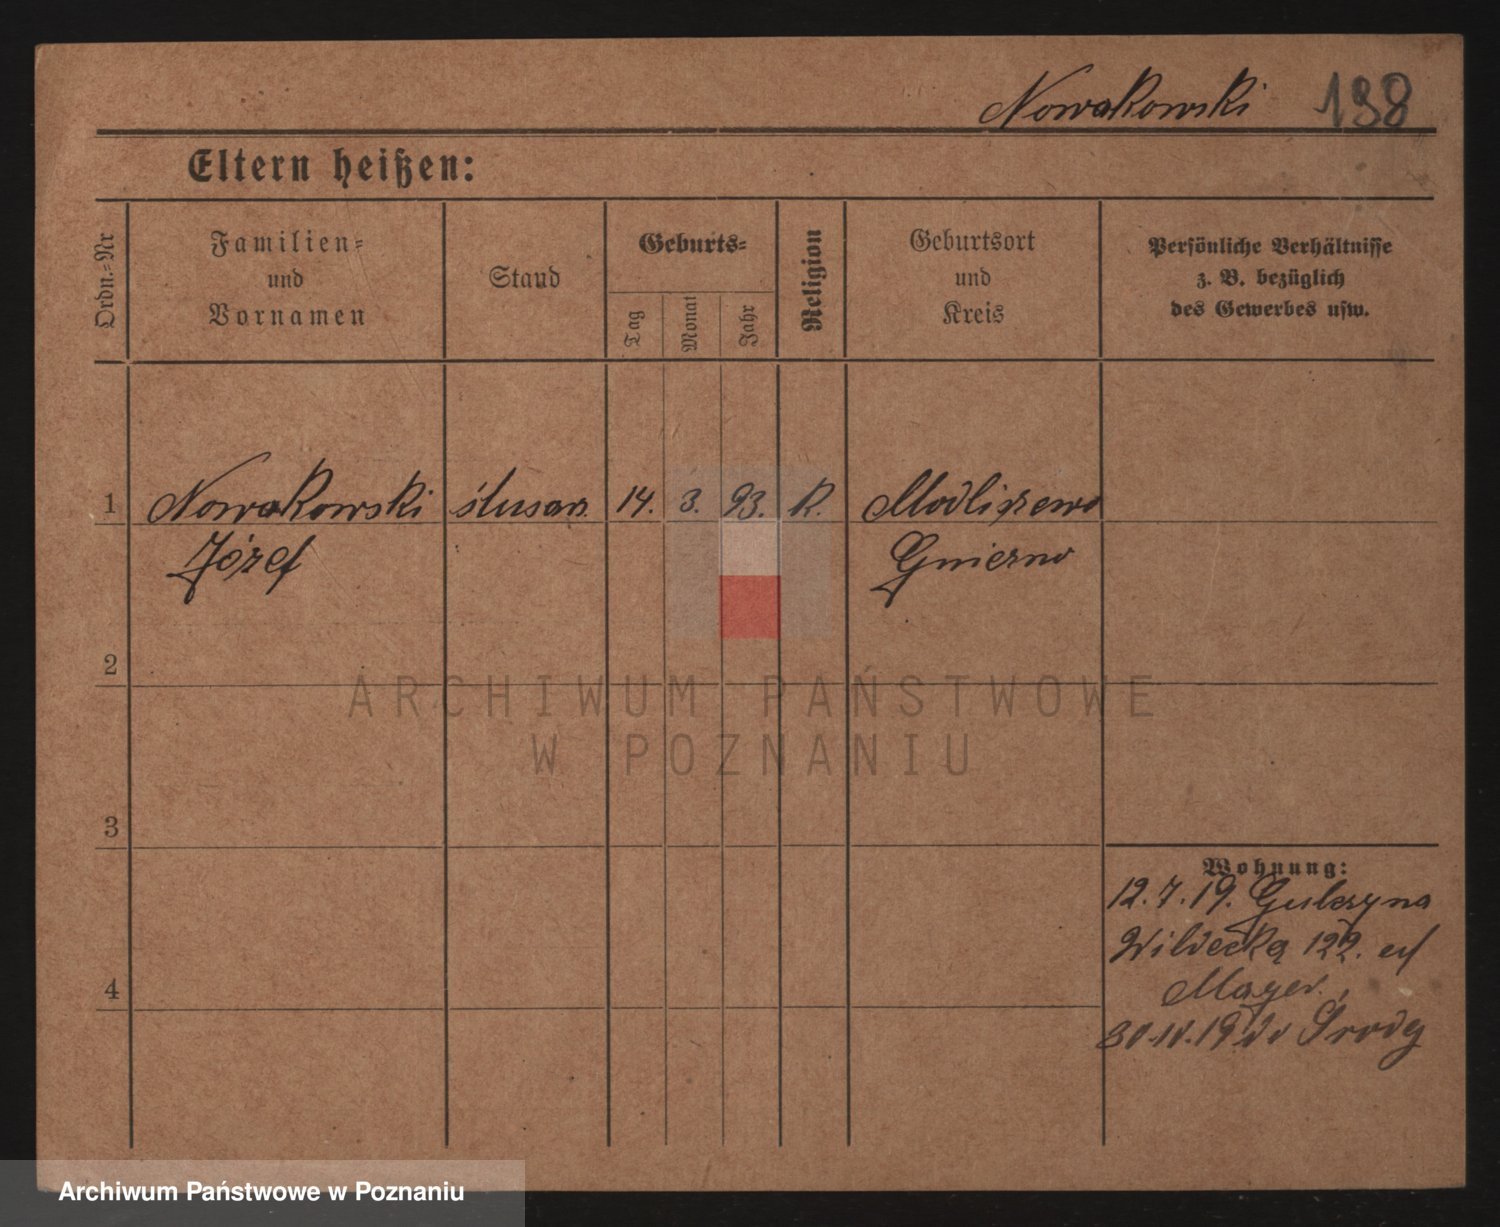 Nowakowski 138
Eltern heißen:
Ordn.=Nr
Familien=
und
Vornamen
Stand
Geburts=
Tag
Monat
Jahr
Religion
Geburtsort
und
Kreis
Persönliche Verhältnisse
z. B. bezüglich
des Gewerbes usw.
1 Nowakowski ślusarz. 14. 3. 93. R. Modliszewo
Józef Gniezno
2
ARCHIWUM PAŃSTWOWE
W POZNANIU
3
Wohnung:
12.7.19.
Wildecką 122.
4
Mayer.
do Środy
Archiwum Państwowe w Poznaniu